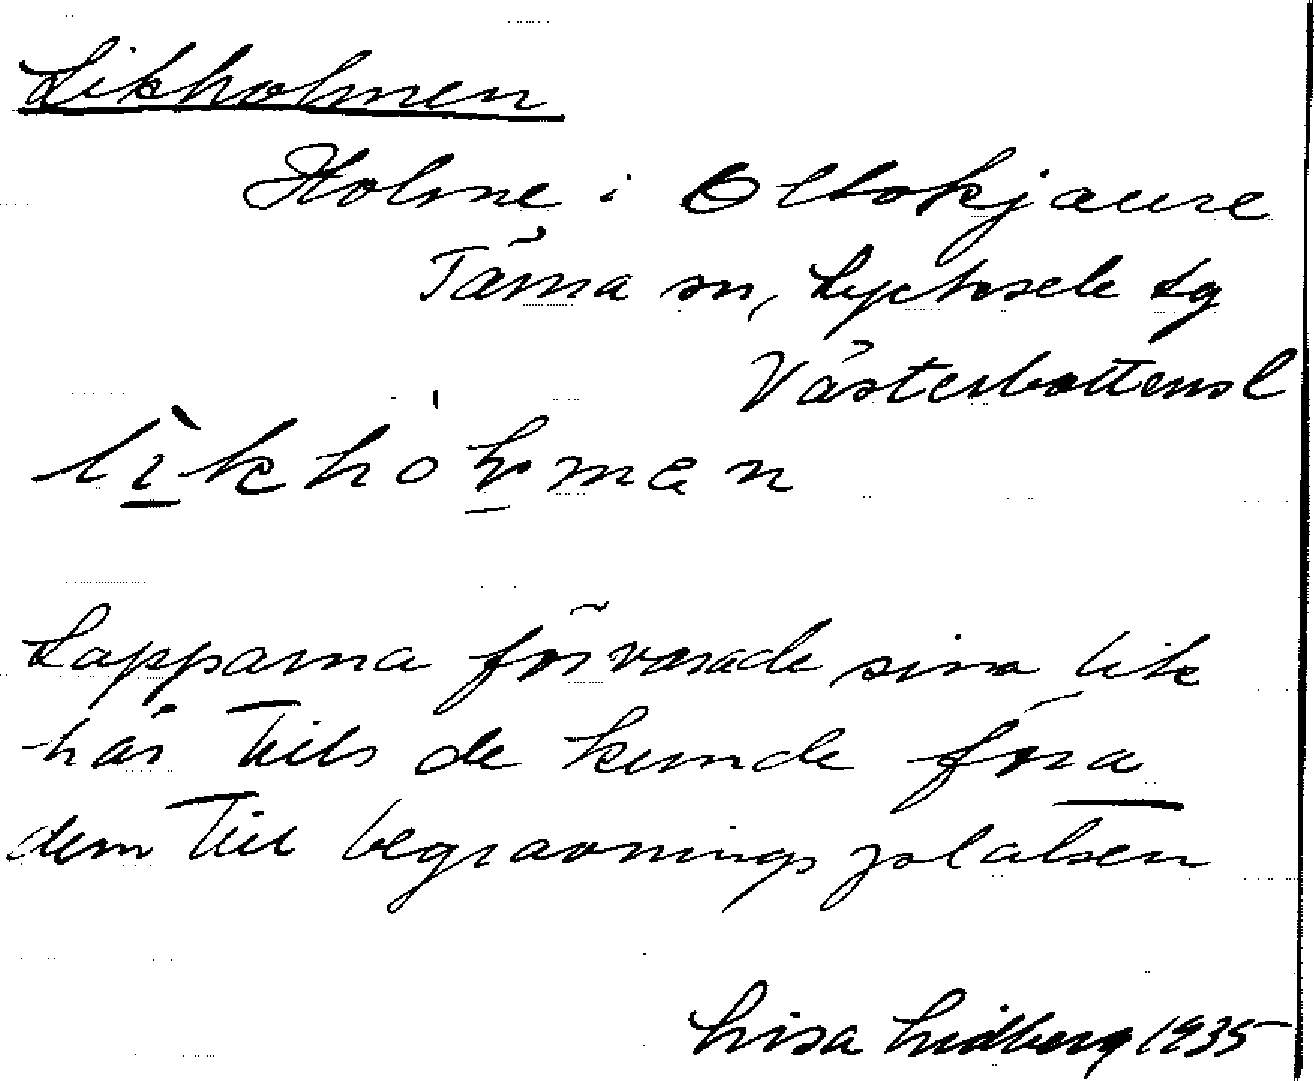 Likholmen
Holme i Oltokjaure
Tärna sn, Lycksele lg
Västerbottens l
lappar
Lapparna förvarade sina lik
här tills de kunde föra
dem till begravningsplatsen
Lisa Lidberg 1935